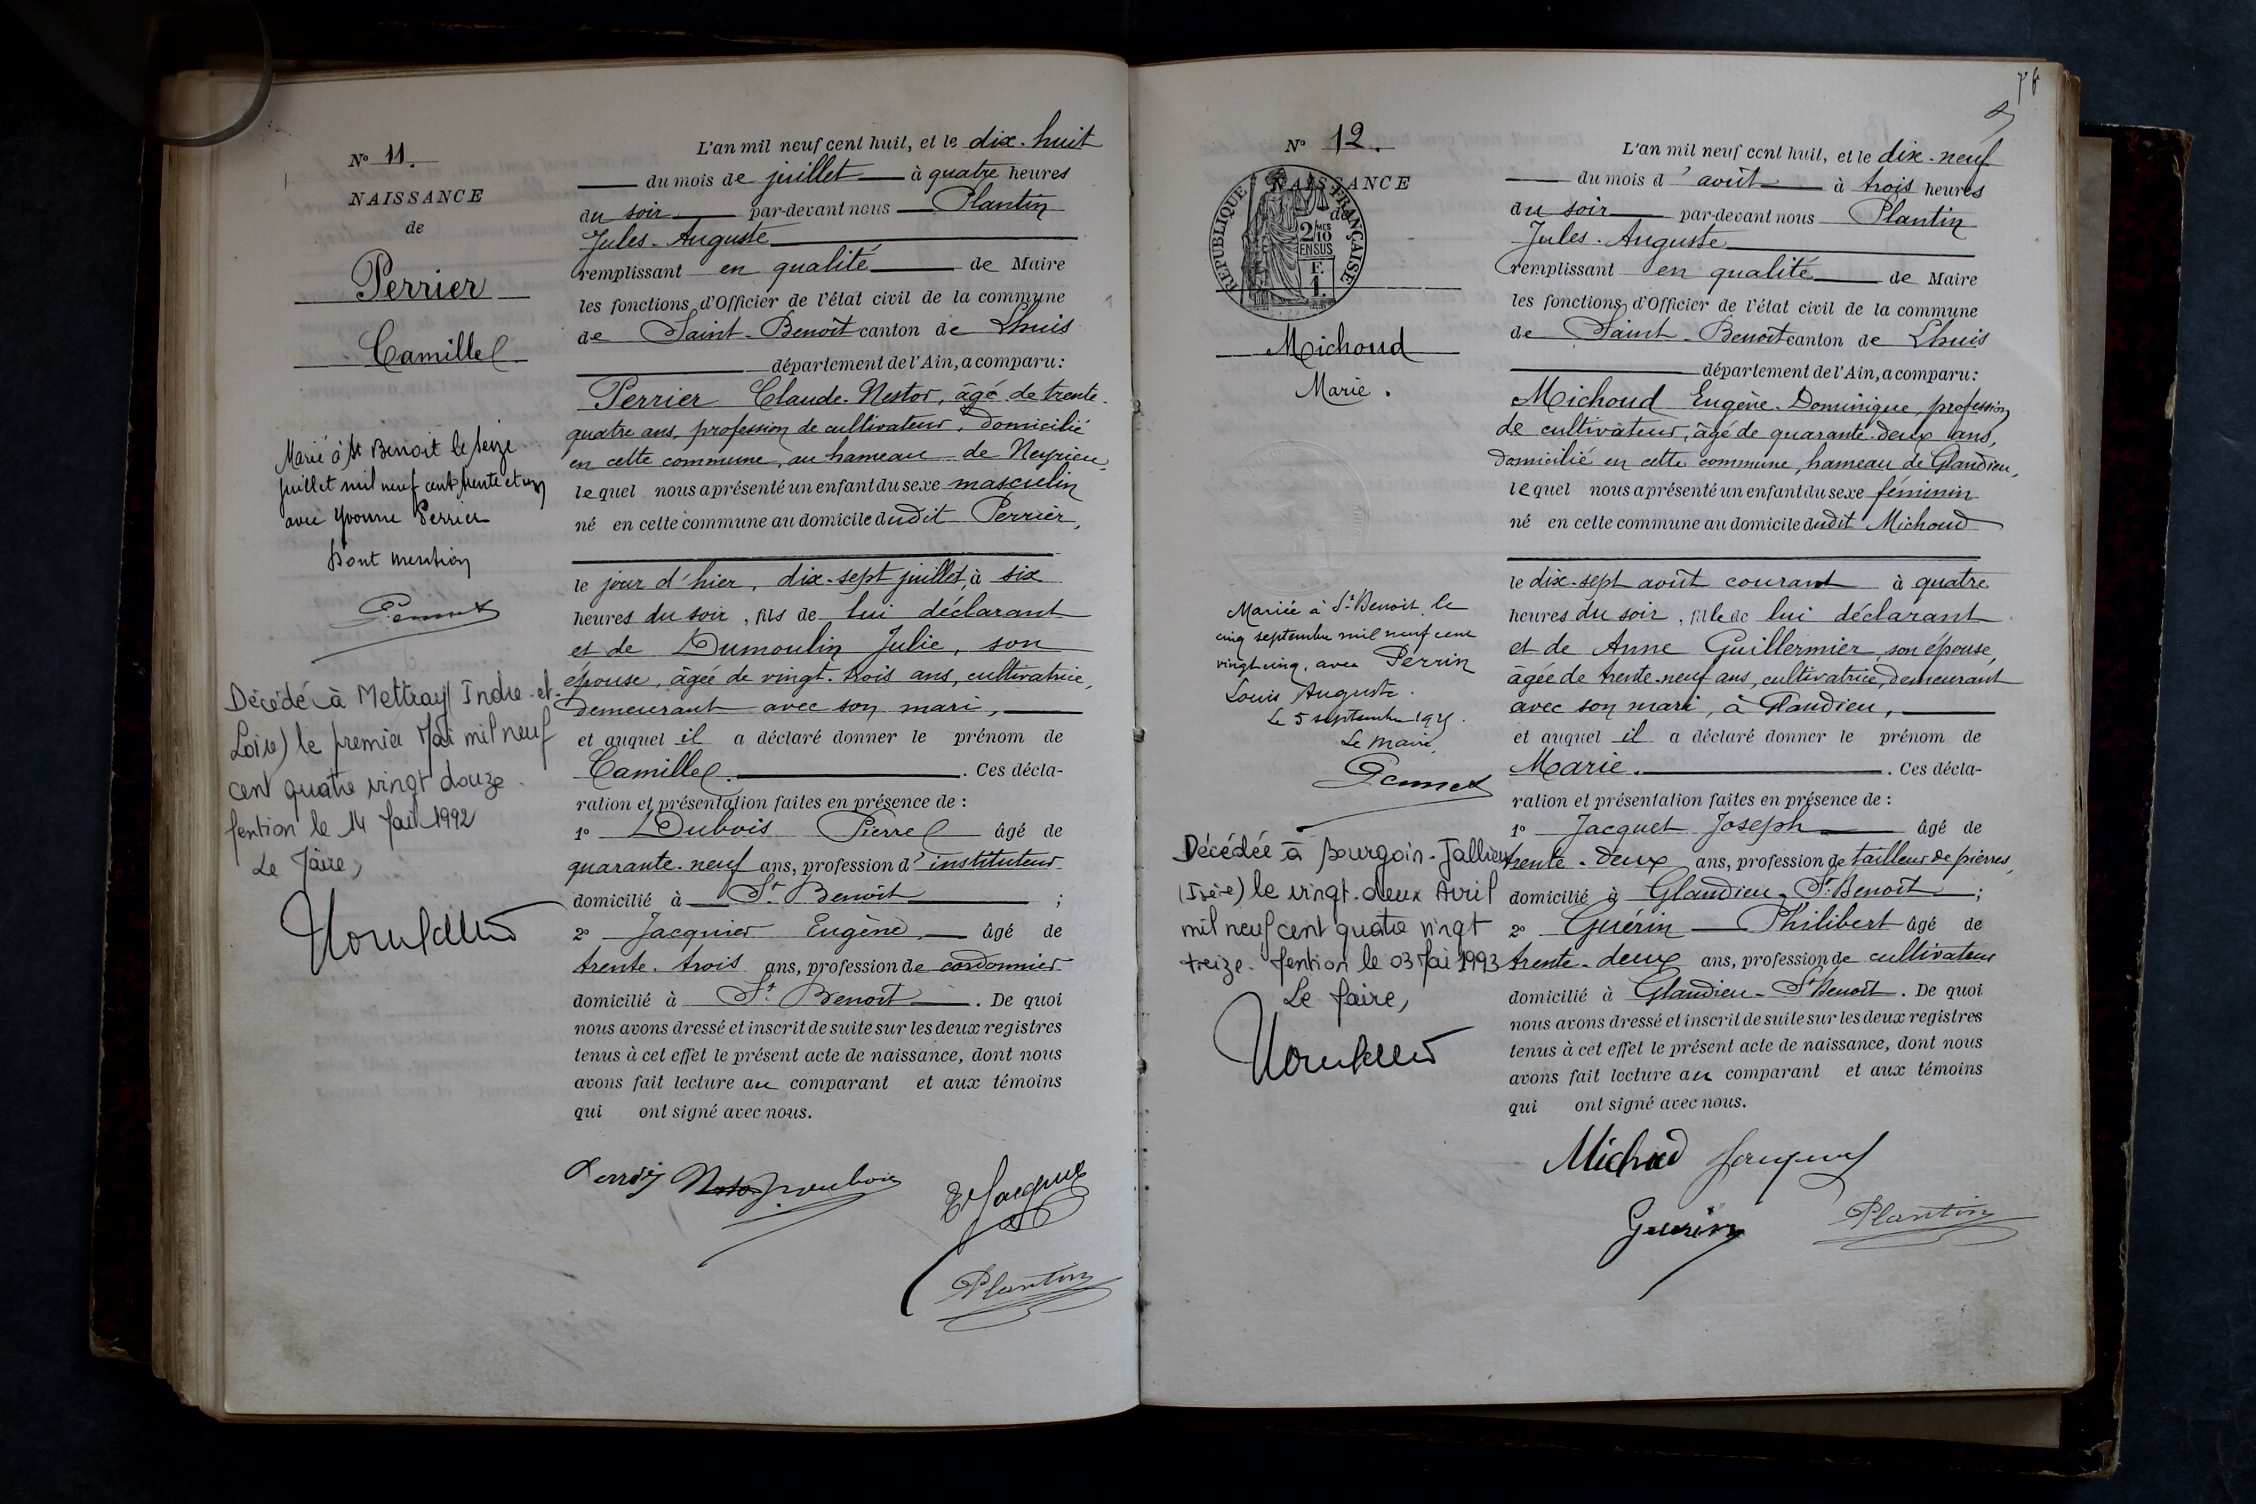 N° 11.
NAISSANCE
de
Perrier
Camille
Marié à St Benoit le seize
juillet mil neuf cent trente et un
avec Yvonne Perrier
Dont mention
Décédé à Mettray (Indre-et-
Loire) le premier Mai mil neuf
cent quatre vingt douze.
Mention le 14 Mai 1992
Le Maire,
L'an mil neuf cent huit, et le dix-huit
du mois de juillet à quatre heures
du soir par-devant nous Plantin
Jules-Auguste
remplissant en qualité de Maire
les fonctions d'Officier de l'état civil de la commune
de Saint-Benoît canton de Lhuis
département de l'Ain, a comparu:
Perrier Claude-Nestor, âgé de trente-
quatre ans, profession de cultivateur, domicilié
en cette commune, au hameau de Neyrieu,
lequel nous a présenté un enfant du sexe masculin
né en cette commune au domicile dudit Perrier,
le jour d'hier, dix-sept juillet, à six
heures du soir, fils de lui déclarant
et de Dumoulin Julie, son
épouse, âgée de vingt-trois ans, cultivatrice,
demeurant avec son mari,
et auquel il a déclaré donner le prénom de
Camille. Ces décla-
ration et présentation faites en présence de :
1° Dubois Pierre âgé de
quarante-neuf ans, profession d'instituteur
domicilié à St Benoît ;
2° Jacquier Eugène, âgé de
trente-trois ans, profession de cordonnier
domicilié à St Benoît. De quoi
nous avons dressé et inscrit de suite sur les deux registres
tenus à cet effet le présent acte de naissance, dont nous
avons fait lecture au comparant et aux témoins
qui ont signé avec nous.
Plantin
78
N° 12.
NAISSANCE
de
RÉPUBLIQUE FRANÇAISE
2/10 MES
EN SUS
F.
1.
Michoud
Marie.
Mariée à St Benoit le
cinq septembre mil neuf cent
vingt cinq, avec Perrin
Louis Auguste.
Le 5 septembre 1925.
Le Maire,
Décédée à Bourgoin-Jallieu
(Isère) le vingt-deux Avril
mil neuf cent quatre vingt
treize. Mention le 03 Mai 1993
Le Maire,
L'an mil neuf cent huit, et le dix-neuf
du mois d'août à trois heures
du soir par-devant nous Plantin
Jules-Auguste
remplissant en qualité de Maire
les fonctions d'Officier de l'état civil de la commune
de Saint-Benoît canton de Lhuis
département de l'Ain, a comparu:
Michoud Eugène-Dominique, profession
de cultivateur, âgé de quarante-deux ans,
domicilié en cette commune, hameau de Glandieu,
lequel nous a présenté un enfant du sexe féminin
né en cette commune au domicile dudit Michoud
le dix-sept août courant à quatre
heures du soir, fille de lui déclarant
et de Anne Guillermier, son épouse,
âgée de trente-neuf ans, cultivatrice, demeurant
avec son mari, à Glandieu,
et auquel il a déclaré donner le prénom de
Marie. Ces décla-
ration et présentation faites en présence de :
1° Jacquet Joseph âgé de
trente-deux ans, profession de tailleur de pierres,
domicilié à Glandieu-St Benoît ;
2° Guérin Philibert âgé de
trente-deux ans, profession de cultivateur
domicilié à Glandieu-St Benoît. De quoi
nous avons dressé et inscrit de suite sur les deux registres
tenus à cet effet le présent acte de naissance, dont nous
avons fait lecture au comparant et aux témoins
qui ont signé avec nous.
Michoud
Guérin Plantin